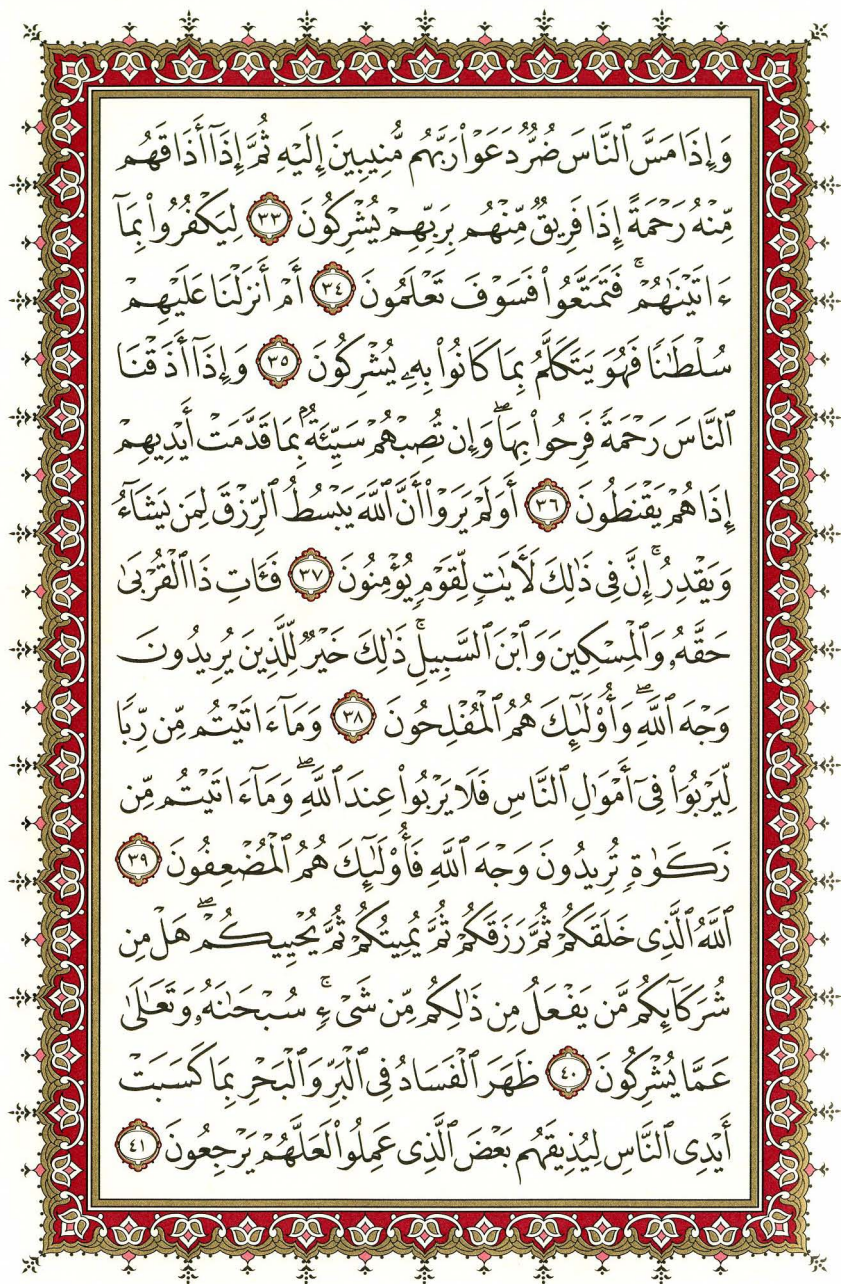 وَإِذَا مَسَّ ٱلنَّاسَ ضُرٌّ دَعَوْا۟ رَبَّهُم مُّنِيبِينَ إِلَيْهِ ثُمَّ إِذَآ أَذَاقَهُم
مِّنْهُ رَحْمَةً إِذَا فَرِيقٌ مِّنْهُم بِرَبِّهِمْ يُشْرِكُونَ ٣٣ لِيَكْفُرُوا۟ بِمَآ
ءَاتَيْنَٰهُمْ ۚ فَتَمَتَّعُوا۟ فَسَوْفَ تَعْلَمُونَ ٣٤ أَمْ أَنزَلْنَا عَلَيْهِمْ
سُلْطَٰنًا فَهُوَ يَتَكَلَّمُ بِمَا كَانُوا۟ بِهِۦ يُشْرِكُونَ ٣٥ وَإِذَآ أَذَقْنَا
ٱلنَّاسَ رَحْمَةً فَرِحُوا۟ بِهَا ۖ وَإِن تُصِبْهُمْ سَيِّئَةٌۢ بِمَا قَدَّمَتْ أَيْدِيهِمْ
إِذَا هُمْ يَقْنَطُونَ ٣٦ أَوَلَمْ يَرَوْا۟ أَنَّ ٱللَّهَ يَبْسُطُ ٱلرِّزْقَ لِمَن يَشَآءُ
وَيَقْدِرُ ۚ إِنَّ فِى ذَٰلِكَ لَءَايَٰتٍ لِّقَوْمٍ يُؤْمِنُونَ ٣٧ فَـَٔاتِ ذَا ٱلْقُرْبَىٰ
حَقَّهُۥ وَٱلْمِسْكِينَ وَٱبْنَ ٱلسَّبِيلِ ۚ ذَٰلِكَ خَيْرٌ لِّلَّذِينَ يُرِيدُونَ
وَجْهَ ٱللَّهِ ۖ وَأُو۟لَٰٓئِكَ هُمُ ٱلْمُفْلِحُونَ ٣٨ وَمَآ ءَاتَيْتُم مِّن رِّبًا
لِّيَرْبُوَا۟ فِىٓ أَمْوَٰلِ ٱلنَّاسِ فَلَا يَرْبُوا۟ عِندَ ٱللَّهِ ۖ وَمَآ ءَاتَيْتُم مِّن
زَكَوٰةٍ تُرِيدُونَ وَجْهَ ٱللَّهِ فَأُو۟لَٰٓئِكَ هُمُ ٱلْمُضْعِفُونَ ٣٩
ٱللَّهُ ٱلَّذِى خَلَقَكُمْ ثُمَّ رَزَقَكُمْ ثُمَّ يُمِيتُكُمْ ثُمَّ يُحْيِيكُمْ ۖ هَلْ مِن
شُرَكَآئِكُم مَّن يَفْعَلُ مِن ذَٰلِكُم مِّن شَىْءٍ ۚ سُبْحَٰنَهُۥ وَتَعَٰلَىٰ
عَمَّا يُشْرِكُونَ ٤٠ ظَهَرَ ٱلْفَسَادُ فِى ٱلْبَرِّ وَٱلْبَحْرِ بِمَا كَسَبَتْ
أَيْدِى ٱلنَّاسِ لِيُذِيقَهُم بَعْضَ ٱلَّذِى عَمِلُوا۟ لَعَلَّهُمْ يَرْجِعُونَ ٤١